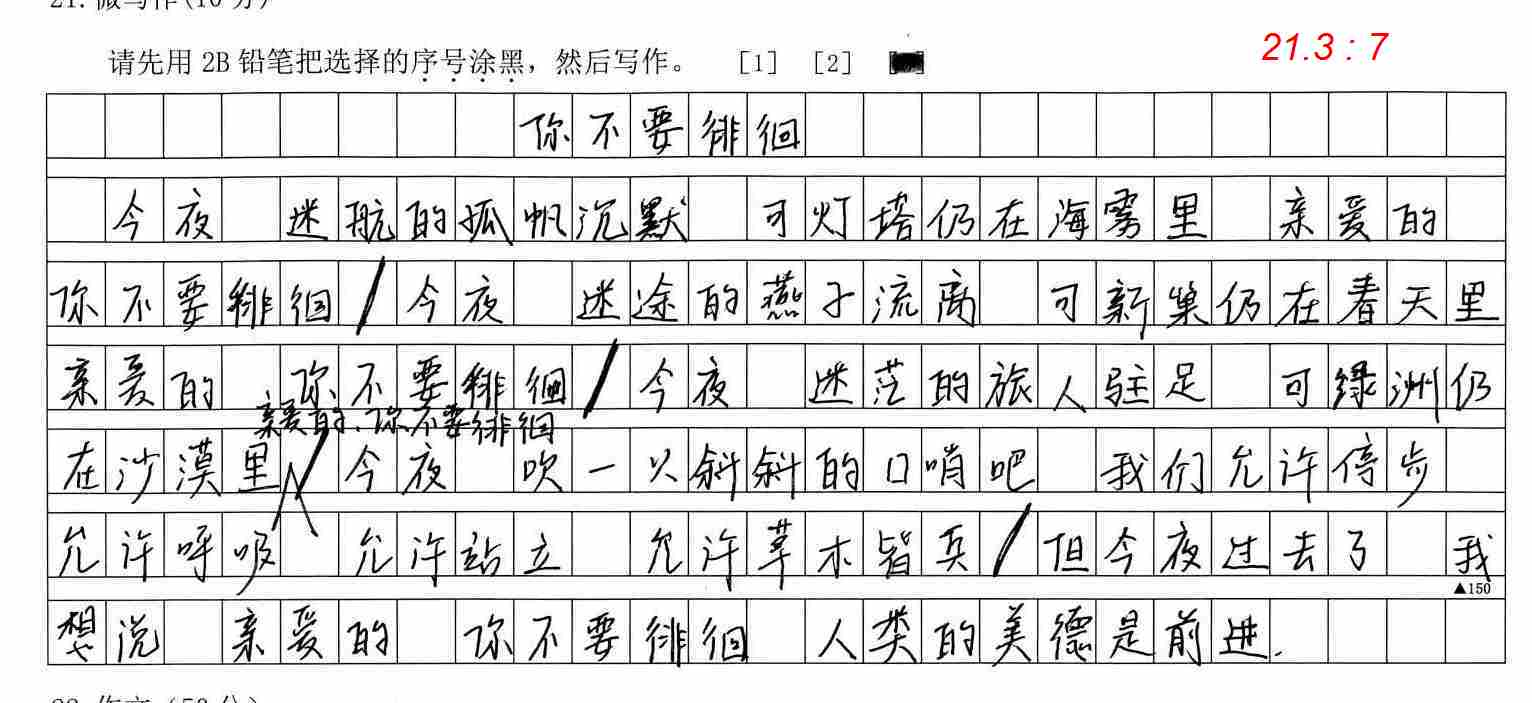 21. 微写作(10 分)
请先用 2B 铅笔把选择的序号涂黑，然后写作。 [1] [2]
21.3 : 7
你不要徘徊
今夜 迷航的孤帆沉默 可灯塔仍在海雾里 亲爱的
你不要徘徊/今夜 迷途的燕子流离 可新巢仍在春天里
亲爱的 你不要徘徊/今夜 迷茫的旅人驻足 可绿洲仍
亲爱的、你不要徘徊
在沙漠里/今夜 吹一以斜斜的口哨吧 我们允许停步
允许呼吸 允许站立 允许草木皆兵/但今夜过去了 我
▲150
想说 亲爱的 你不要徘徊 人类的美德是前进.